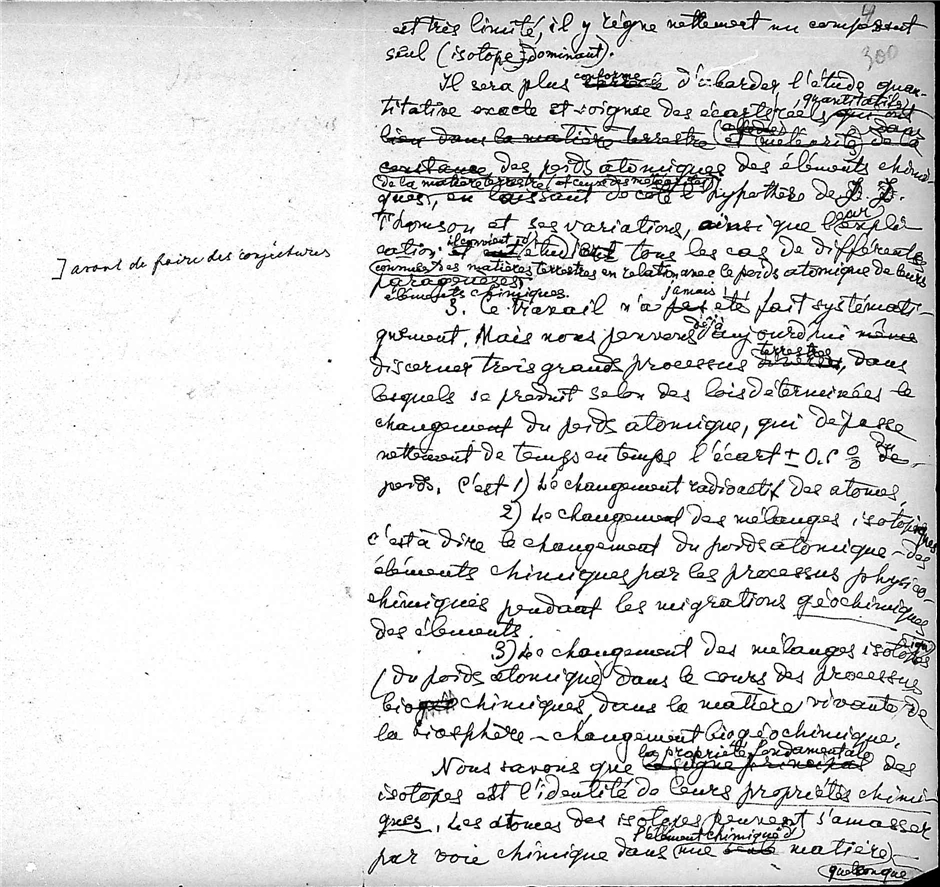 4
300
est très limité, il y règne nettement un composant
seul (isotope dominant).
Il sera plus conforme d'abarder l'étude quan-
titative exacte et soignee des écarts réels, quantitatifs, qui ont
lieu dans la matière terrestre et (météorite) dans de la
constance des poids atomiques des éléments chimi-
de la matière terrestre (et ceux des météorites)
ques, en laissant de coté l'hypothèse de J. J.
Thomson et ses variations, ainsi que leur expli
cation il convient d'étudier tous les cas de différents
] avant de faire des conjectures
connues des matières terrestres en relation avec le poids atomique de leurs
parageneses
éléments chimiques.
3. Ce travail n'a jamais été fait systémati-
quement. Mais nous pouvons déjà aujourd'hui même
discerner trois grands processus terrestres, dans
lesquels se produit selon des lois déterminées le
changement du poids atomique, qui dépasse
nettement de temps en temps l'écart ± 0.5 % du
poids. C'est 1) Le changement radioactif des atomes,
2) Le changement des mélanges isotopiques
c'est à dire le changement du poids atomique des
éléments chimiques par les processus physico-
chimiques pendant les migrations géochimiques
des éléments
3) Le changement des mélanges isotopiques
(du poids atomique) dans le cours des processus
biochimiques, dans la matière vivante, de
la biosphère – changement biogéochimique.
Nous savons que la propriété fondamentale le signe principal des
isotopes est l'identité de leurs propriétés chimi-
ques. Les atomes des isotopes peuvent s'amasser
l'élément chimique d'
par voie chimique dans une seule matière
quelconque